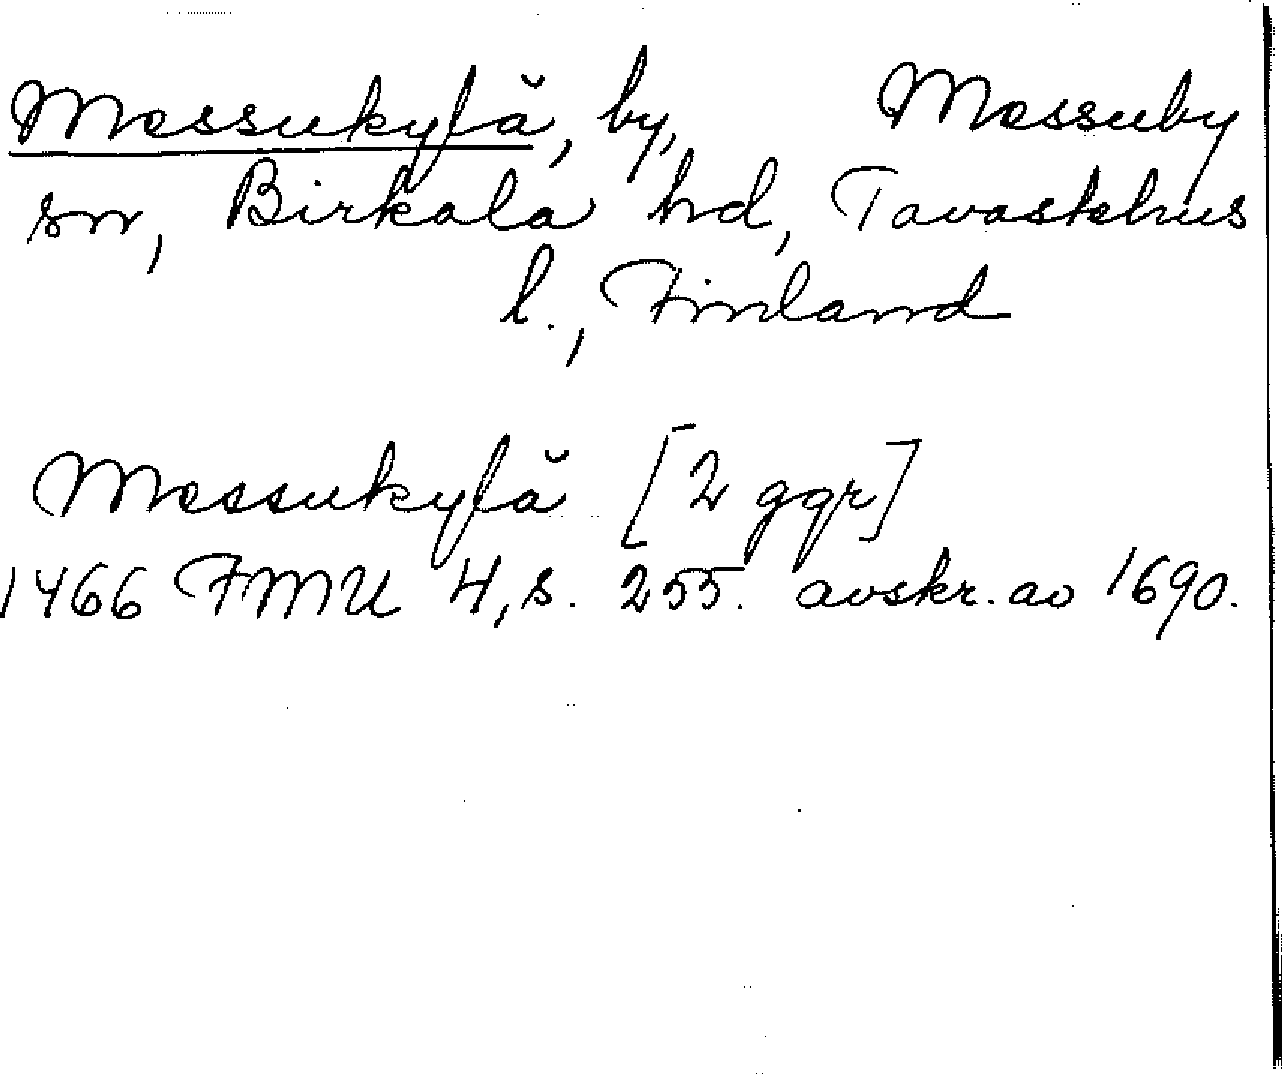 Messukylä, by, Messuby
sn, Birkala hd, Tavastehus
l., Finland
Messukylä [2 ggr]
1466 FMU 4, s. 255. avskr. av 1690.